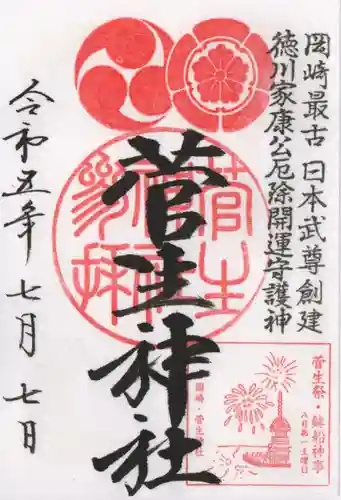 岡崎最古 日本武尊創建
徳川家康公厄除開運守護神
菅生神社
令和五年七月七日
菅生祭・鉾船神事
八月第一土曜日
岡崎・菅生神社